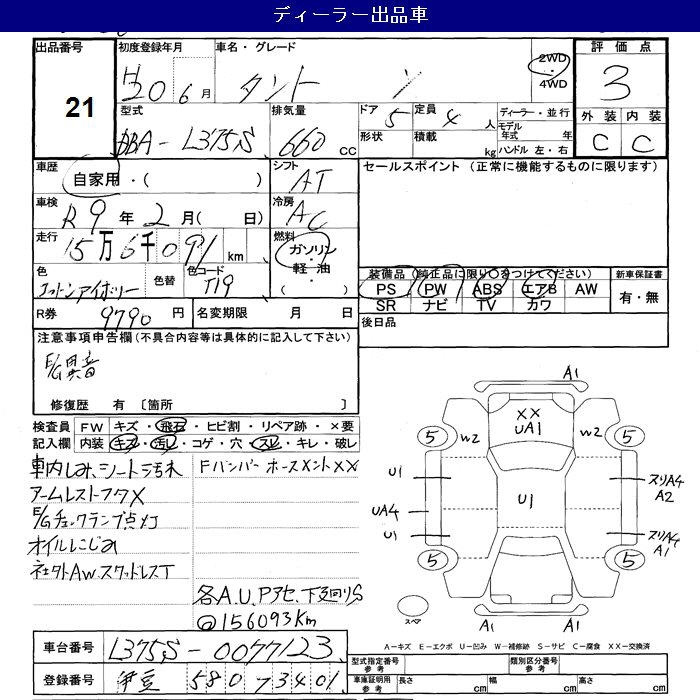 ディーラー出品車
出品番号 初度登録年月 車名・グレード 2WD・4WD 評価点
21 H20 6月 タント 3
外装 内装
C C
型式 排気量 ドア 定員 ディーラー・並行
DBA-L375S 660cc 5 4人 モデル年式 年
形状 積載 kg ハンドル 左・右
車歴 シフト セールスポイント (正常に機能するものに限ります)
自家用・( ) AT
車検 冷房
R9年2月( 日) AC
走行 燃料
15万6千091km ガソリン・軽油・( )
色 色替 色コード
コットンアイボリー T19
装備品 (純正品に限り○をつけてください) 新車保証書
PS PW ABS エアB AW 有・無
SR ナビ TV カワ
R券 9790円 名変期限 月 日 後日品
注意事項申告欄(不具合内容等は具体的に記入して下さい)
E/G異音
修復歴 有 〔箇所 〕
検査員 FW キズ・飛石・ヒビ割・リペア跡・×要
記入欄 内装 キズ・汚レ・コゲ・穴・スレ・キレ・破レ
車内しみ、シート汚れ Fバンパー ホースメントXX
アームレストフタX
E/Gチェックランプ点灯
オイルにじみ
社外AW.スタッドレスT
各A.U.Pアセ、下廻りS
@156093Km
A1
XX
UA1
5 W2 W2 5
U1 U1 スリA4
A2
UA4
U1 スリA4
A1
5 5
スペア A1 A1
A-キズ E-エクボ U-凹み W-補修跡 S-サビ C-腐食 XX-交換済
車台番号 L375S-0077123
型式指定番号 参考 類別区分番号 参考
登録番号 伊豆 580 7 3401
車庫証明用 参考 長さ cm 幅 cm 高さ cm